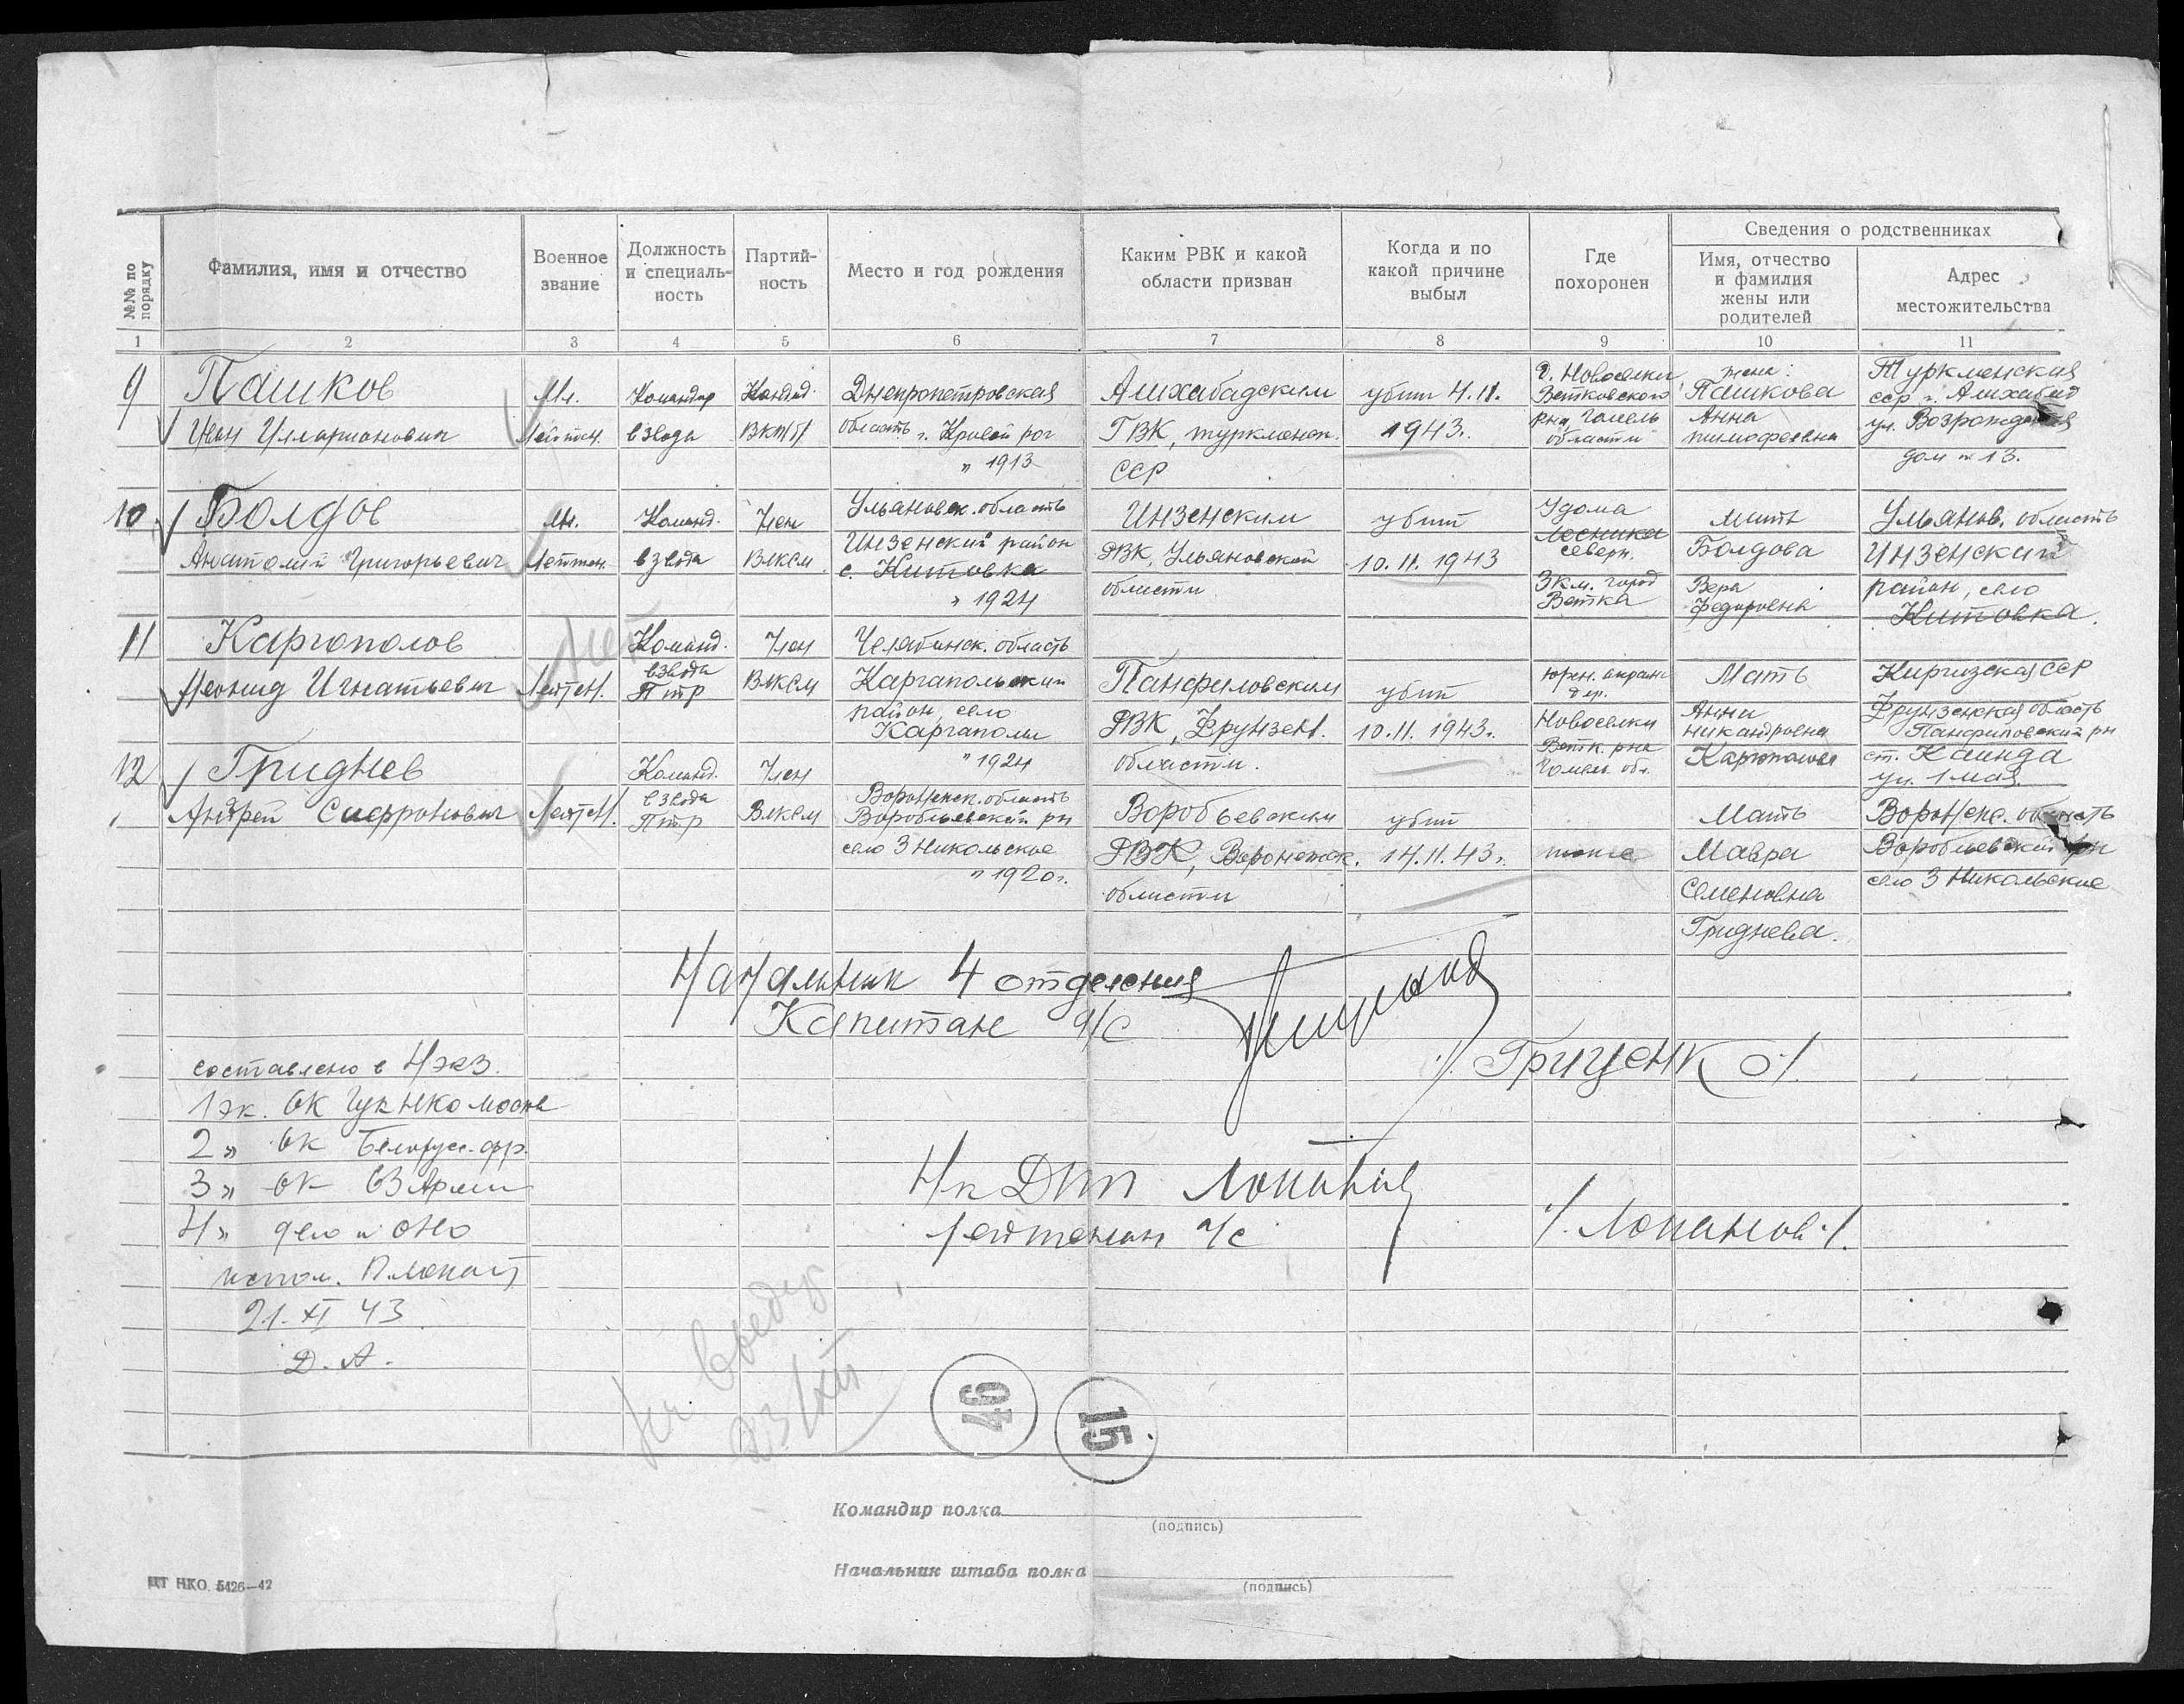 №№ по порядку
Фамилия, имя и отчество
Военное звание
Должность и специаль-ность
Партий-ность
Место и год рождения
Каким РВК и какой области призван
Когда и по какой причине выбыл
Где похоронен
Сведения о родственниках
Имя, отчество и фамилия жены или родителей
Адрес местожительства
1 2 3 4 5 6 7 8 9 10 11
9 Пашков Мл. Командир Кандид. Днепропетровская Ашхабадским убит 4.11. д. Новоселки жена: Туркменская
Иван Илларионович Лейтен. взвода ВКП/б/ область г. Кривой рог ГВК, туркменск. 1943г. Ветковского Пашкова сср г. Ашхабад
" 1913 ССР р-на, Гомель области Анна тимофеевна ул. Возрождения
дом № 13.
10 Болдов Мл. Команд. Член Ульяновск. область Инзенским убит У дома Мать Ульянов. область
Анатолий Григорьевич Лейтен. взвода ВЛКСМ Инзенский район РВК, Ульяновской 10.11.1943 лесника северн. Болдова Инзенский
с. Китовка области 3 км. город Вера район, село
" 1924 Ветка Федоровна Китовка.
11 Каргополов Команд. Член Челябинск. область
Леонид Игнатьевич Лейтен. взвода ПТР ВЛКСМ Каргапольский Панфиловским убит дер. Мать Киргизская ССР
район, село РВК, Фрунзен. 10.11.1943г. Новоселки Анна Фрунзенская область
Каргаполи области. Ветк. р-на Никандровна Панфиловский рн
" 1924 Гомел. обл. Каргополова ст. Каинда
ул. 1 мая.
12 Гриднев Команд. Член Воронежск. область
Андрей Сафронович Лейтен. взвода ПТР ВЛКСМ Воробьевский рн Воробьевским убит Мать Воронежс. область
село 3 Никольское РВК, Воронежск. 14.11.43г. тоже Мавра Воробьевский рн
" 1920г. области Семеновна село 3 Никольские
Гриднева.
Начальник 4 отделения
Капитан а/с
/. Гриценко ./
составлено в 4 экз.
1 эк. ОК ГУК НКО москва
2 " ОК Белорус. фр.
3 " ОК 63 Армии
4 " дело
21.XI 43
Д. А.
Лейтенант а/с
/. Лопанов ./
46
15
Командир полка
(подпись)
Начальник штаба полка
(подпись)
ЦТ НКО. 5426—42